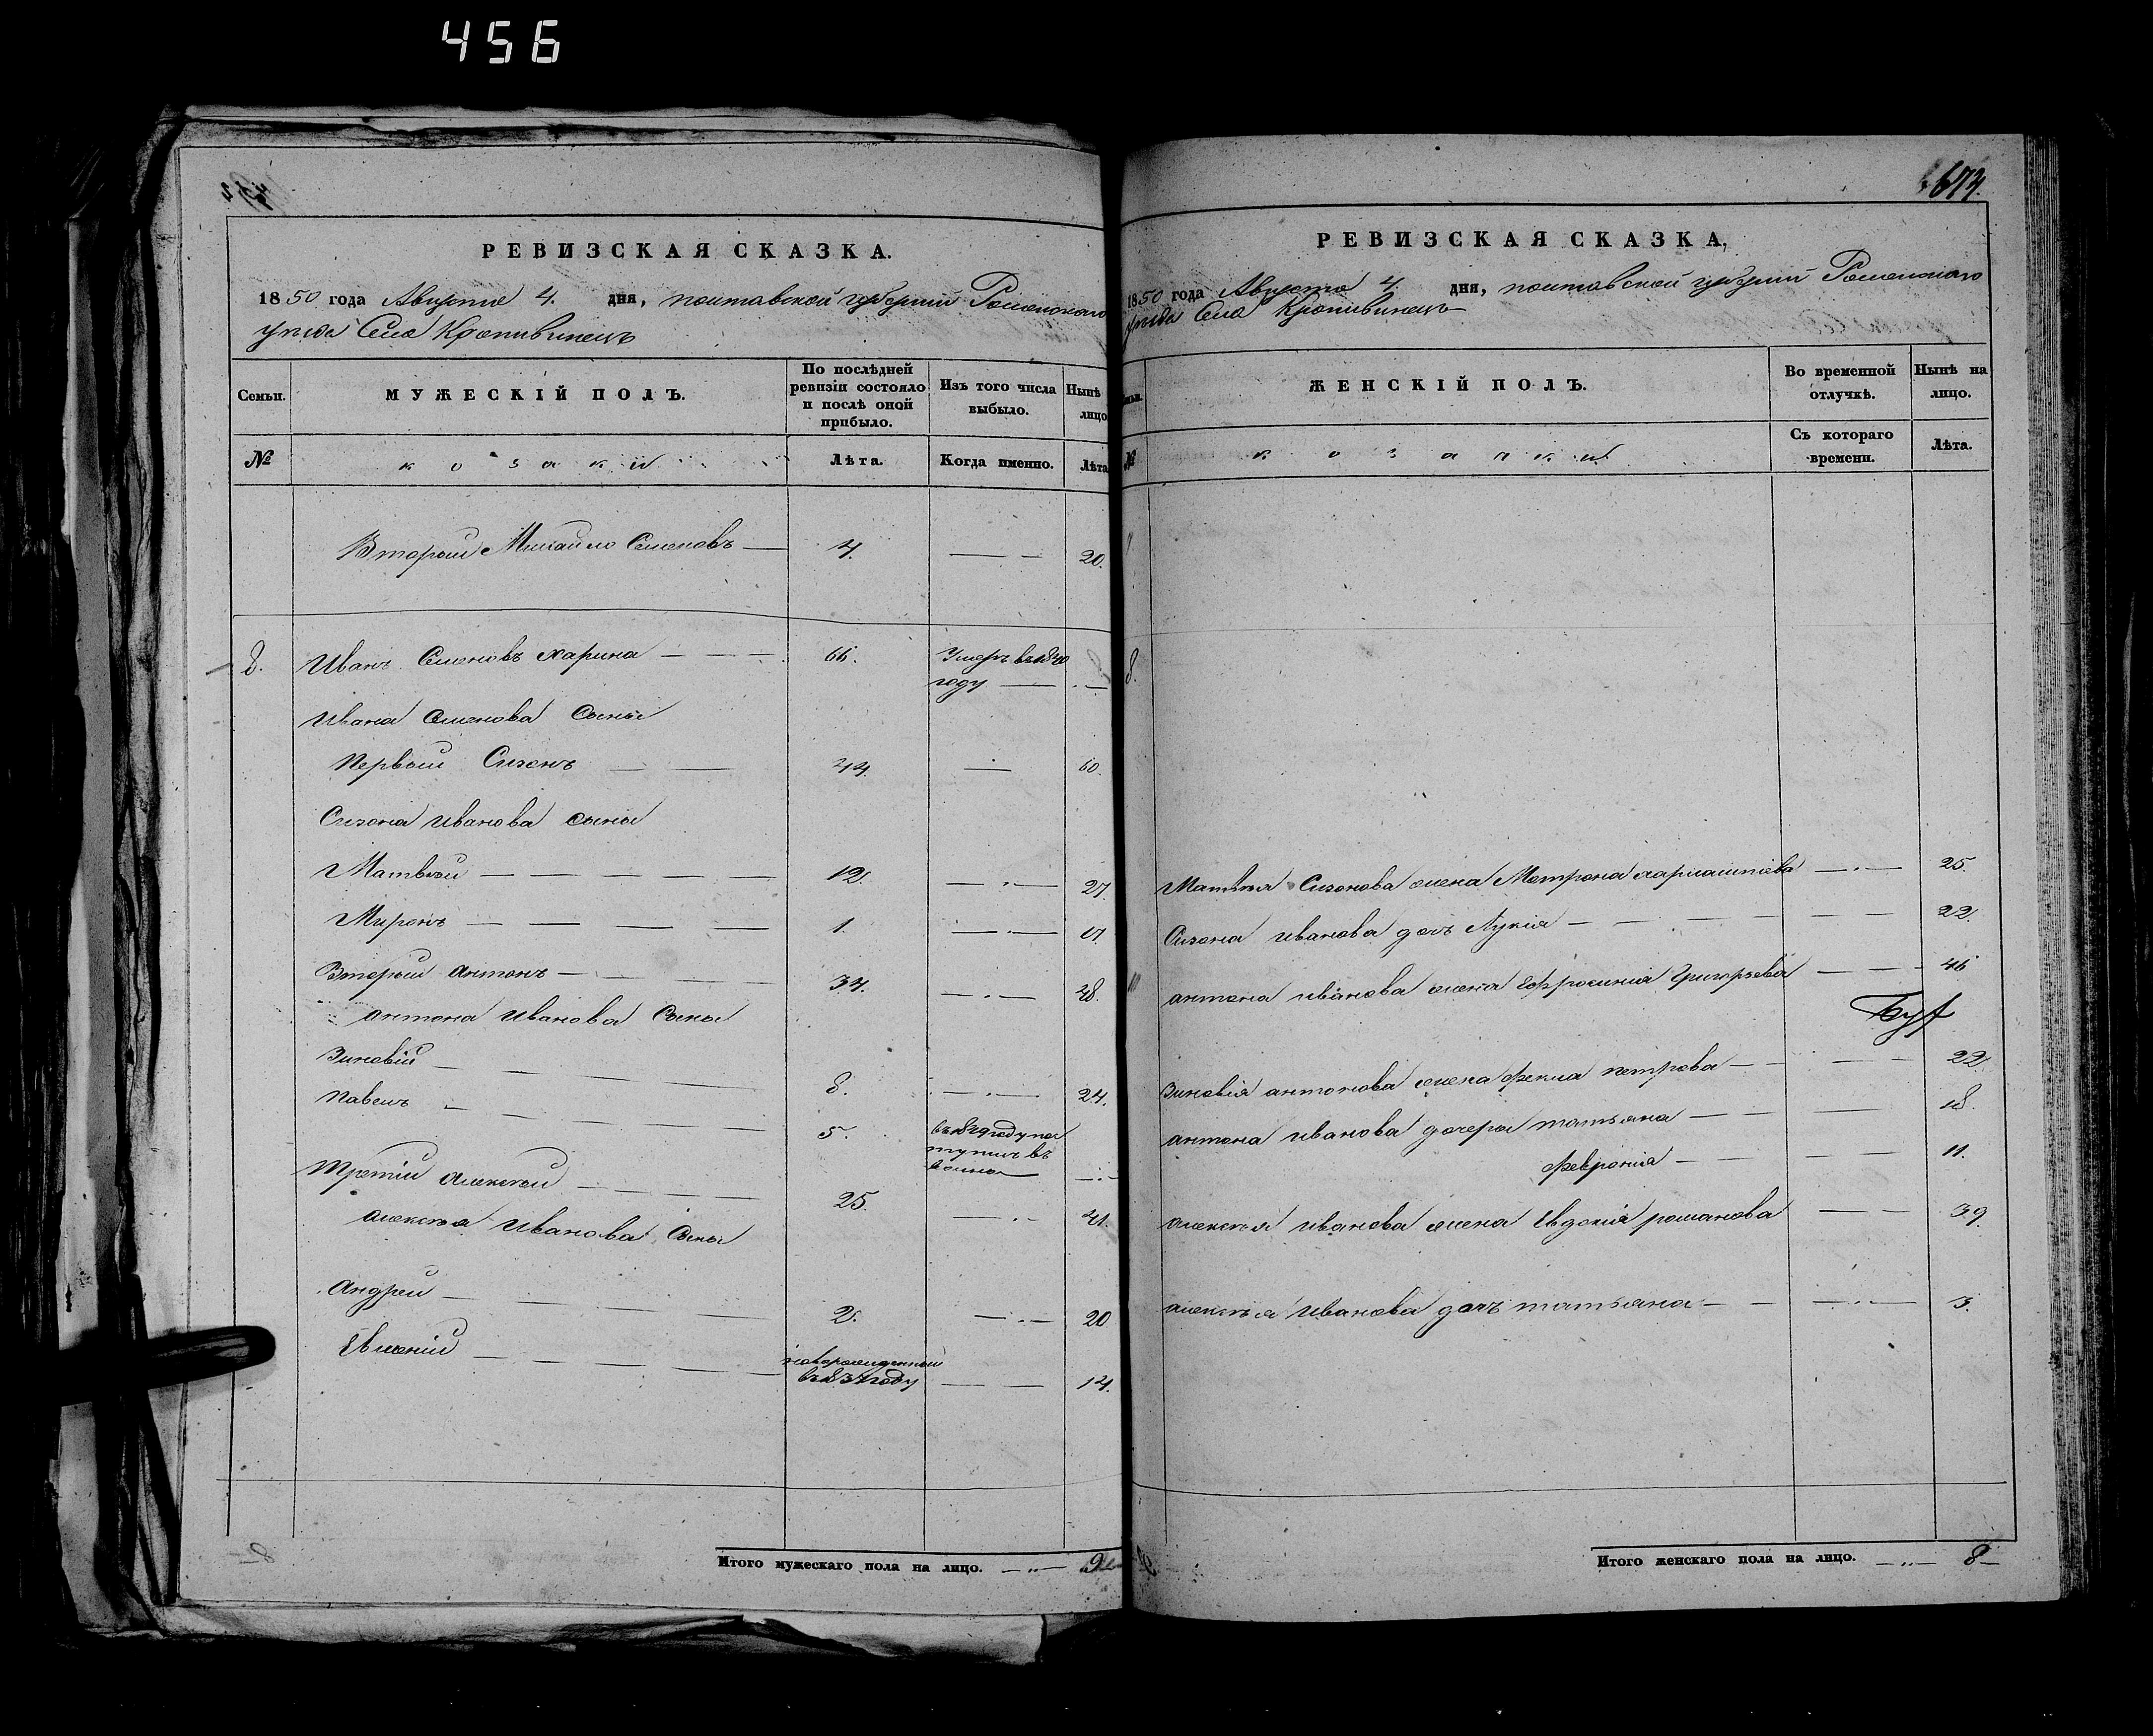 456
РЕВИЗСКАЯ СКАЗКА.
1850 года Августа 4. дня, полтавской губерніи Роменскаго
уезда Села Кропивинецъ
Семьи. МУЖЕСКІЙ ПОЛЪ. По послѣдней ревизіи состояло и послѣ оной прибыло. Изъ того числа выбыло. Нынѣ лицо
№ козаки Лѣта. Когда именно. Лѣта
Вторый Михайло Семеновъ — 4. — — 20.
8. Иванъ Семеновъ харина — — — 66. Умеръ въ 1840
году — . —
Ивана Семенова Сыны
Первый Сизонъ — — 44. — 60.
Сизона Иванова сыны
Матвей — — — — — 12. — . — 27.
Миронъ — — — — 1. — . — 17.
Вторый антонъ — — — — 34. — . — 48.
антона Иванова Сыны
Зиновій — — — — 8. — . — 24.
Павелъ — — — — 5.
Третій Алексей — — — — 25. — . — 41.
алексея Иванова Сыны
Андрей — — — 2. — . — 20
Евмений — — — — — новорожденный
въ 1837 году — — 14.
Итого мужескаго пола на лицо. — „ — 9
674.
РЕВИЗСКАЯ СКАЗКА,
1850 года Августа 4. дня, полтавской губерніи Роменскаго
уезда Села Кропивинецъ
ЖЕНСКІЙ ПОЛЪ. Во временной отлучкѣ. Нынѣ на лицо.
№ козачки Съ котораго времени. Лѣта.
8.
Матвея Сизонова жена Мотрона — . — 25.
Сизона Иванова дочь Лукія — — — — — — 22.
антона иванова жена Ефросинія Григорьева — — — 46
Зиновія антонова жена Фекла петрова — — — — 22
антона иванова дочери татьяна — — — 18.
Февронія — — — — 11.
алексея иванова жена Евдокія романова — — 39.
алексея Иванова дочь татьяна — — — . . — 3.
Итого женскаго пола на лицо. — „ — 8 —